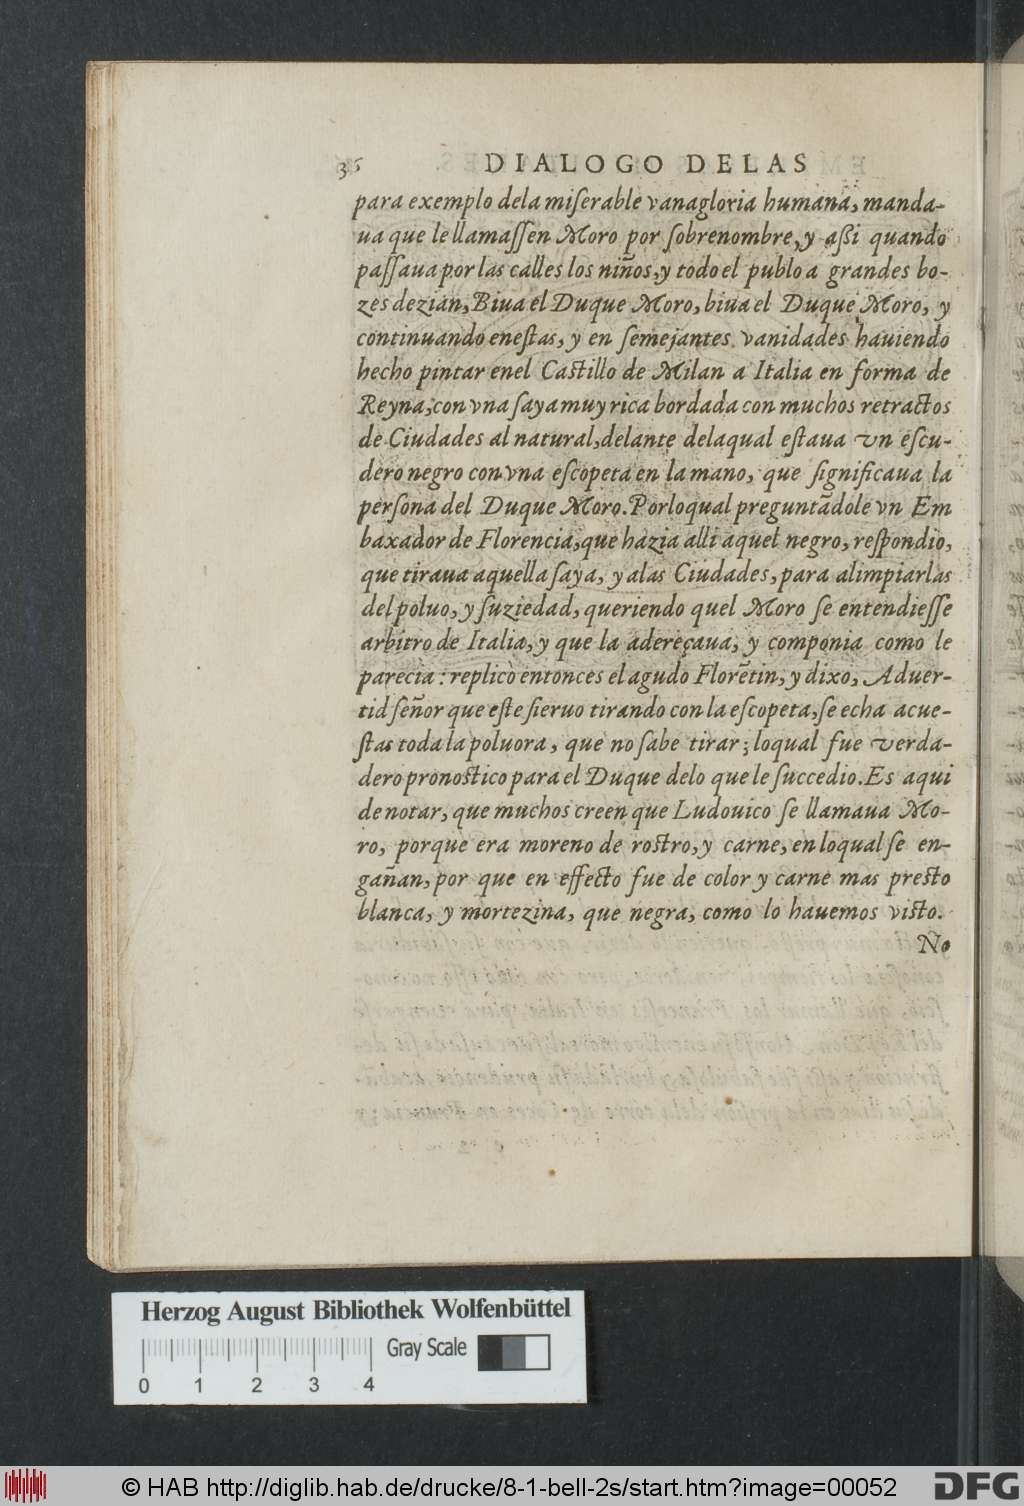 36 DIALOGO DELAS
para exemplo dela miſerable vanagloria humana, manda-
ua que le llamaſſen Moro por ſobrenombre, y aßi quando
paſſaua por las calles los niños, y todo el publo a grandes bo-
zes dezian, Biua el Duque Moro, biua el Duque Moro, y
continuando eneſtas, y en ſemejantes vanidades hauiendo
hecho pintar enel Caſtillo de Milan a Italia en forma de
Reyna, con vna ſaya muy rica bordada con muchos retractos
de Ciudades al natural, delante delaqual eſtaua vn eſcu-
dero negro con vna eſcopeta en la mano, que ſignificaua la
perſona del Duque Moro. Porloqual preguntãdole vn Em
baxador de Florencia, que hazia alli aquel negro, reſpondio,
que tiraua aquella ſaya, y alas Ciudades, para alimpiarlas
del poluo, y ſuziedad, queriendo quel Moro ſe entendieſſe
arbitro de Italia, y que la adereçaua, y componia como le
parecia: replicò entonces el agudo Florẽtin, y dixo, Aduer-
tid ſeñor que eſte ſieruo tirando con la eſcopeta, ſe echa acue-
ſtas toda la poluora, que no ſabe tirar; loqual fue verda-
dero pronoſtico para el Duque delo que le ſuccedio. Es aqui
de notar, que muchos creen que Ludouico ſe llamaua Mo-
ro, porque era moreno de roſtro, y carne, en loqual ſe en-
gañan, por que en effecto fue de color y carne mas preſto
blanca, y mortezina, que negra, como lo hauemos viſto.
No
Herzog August Bibliothek Wolfenbüttel
Gray Scale
0 1 2 3 4
© HAB http://diglib.hab.de/drucke/8-1-bell-2s/start.htm?image=00052
DFG